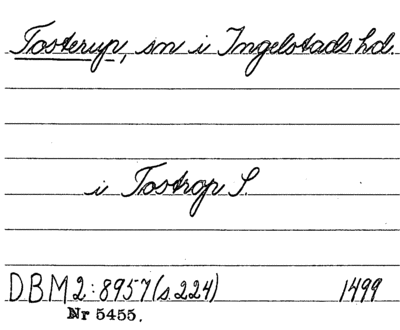 Tosterup, sn i Ingelstads hd.
i Tostrop S.
DBM 2:8957 (s. 224) 1499
Nr 5455.